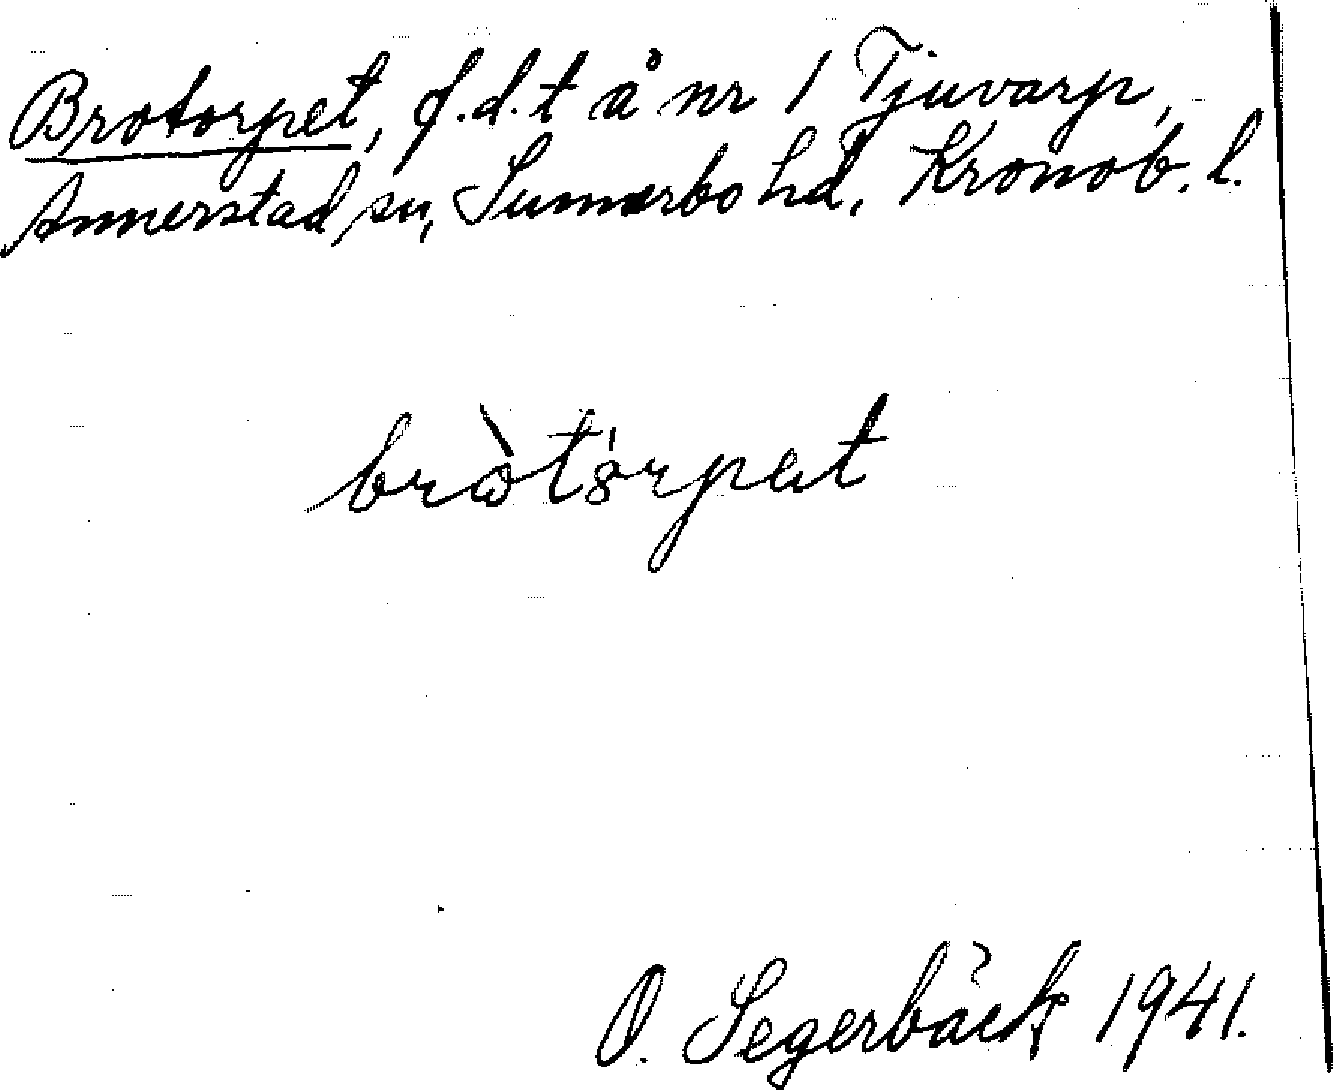 Brotorpet, f.d.t å nr 1 Tjuvarp,
Annerstad sn, Sunnerbo hd, Kronob. l.
bròtórpet
O. Segerbäck 1941.